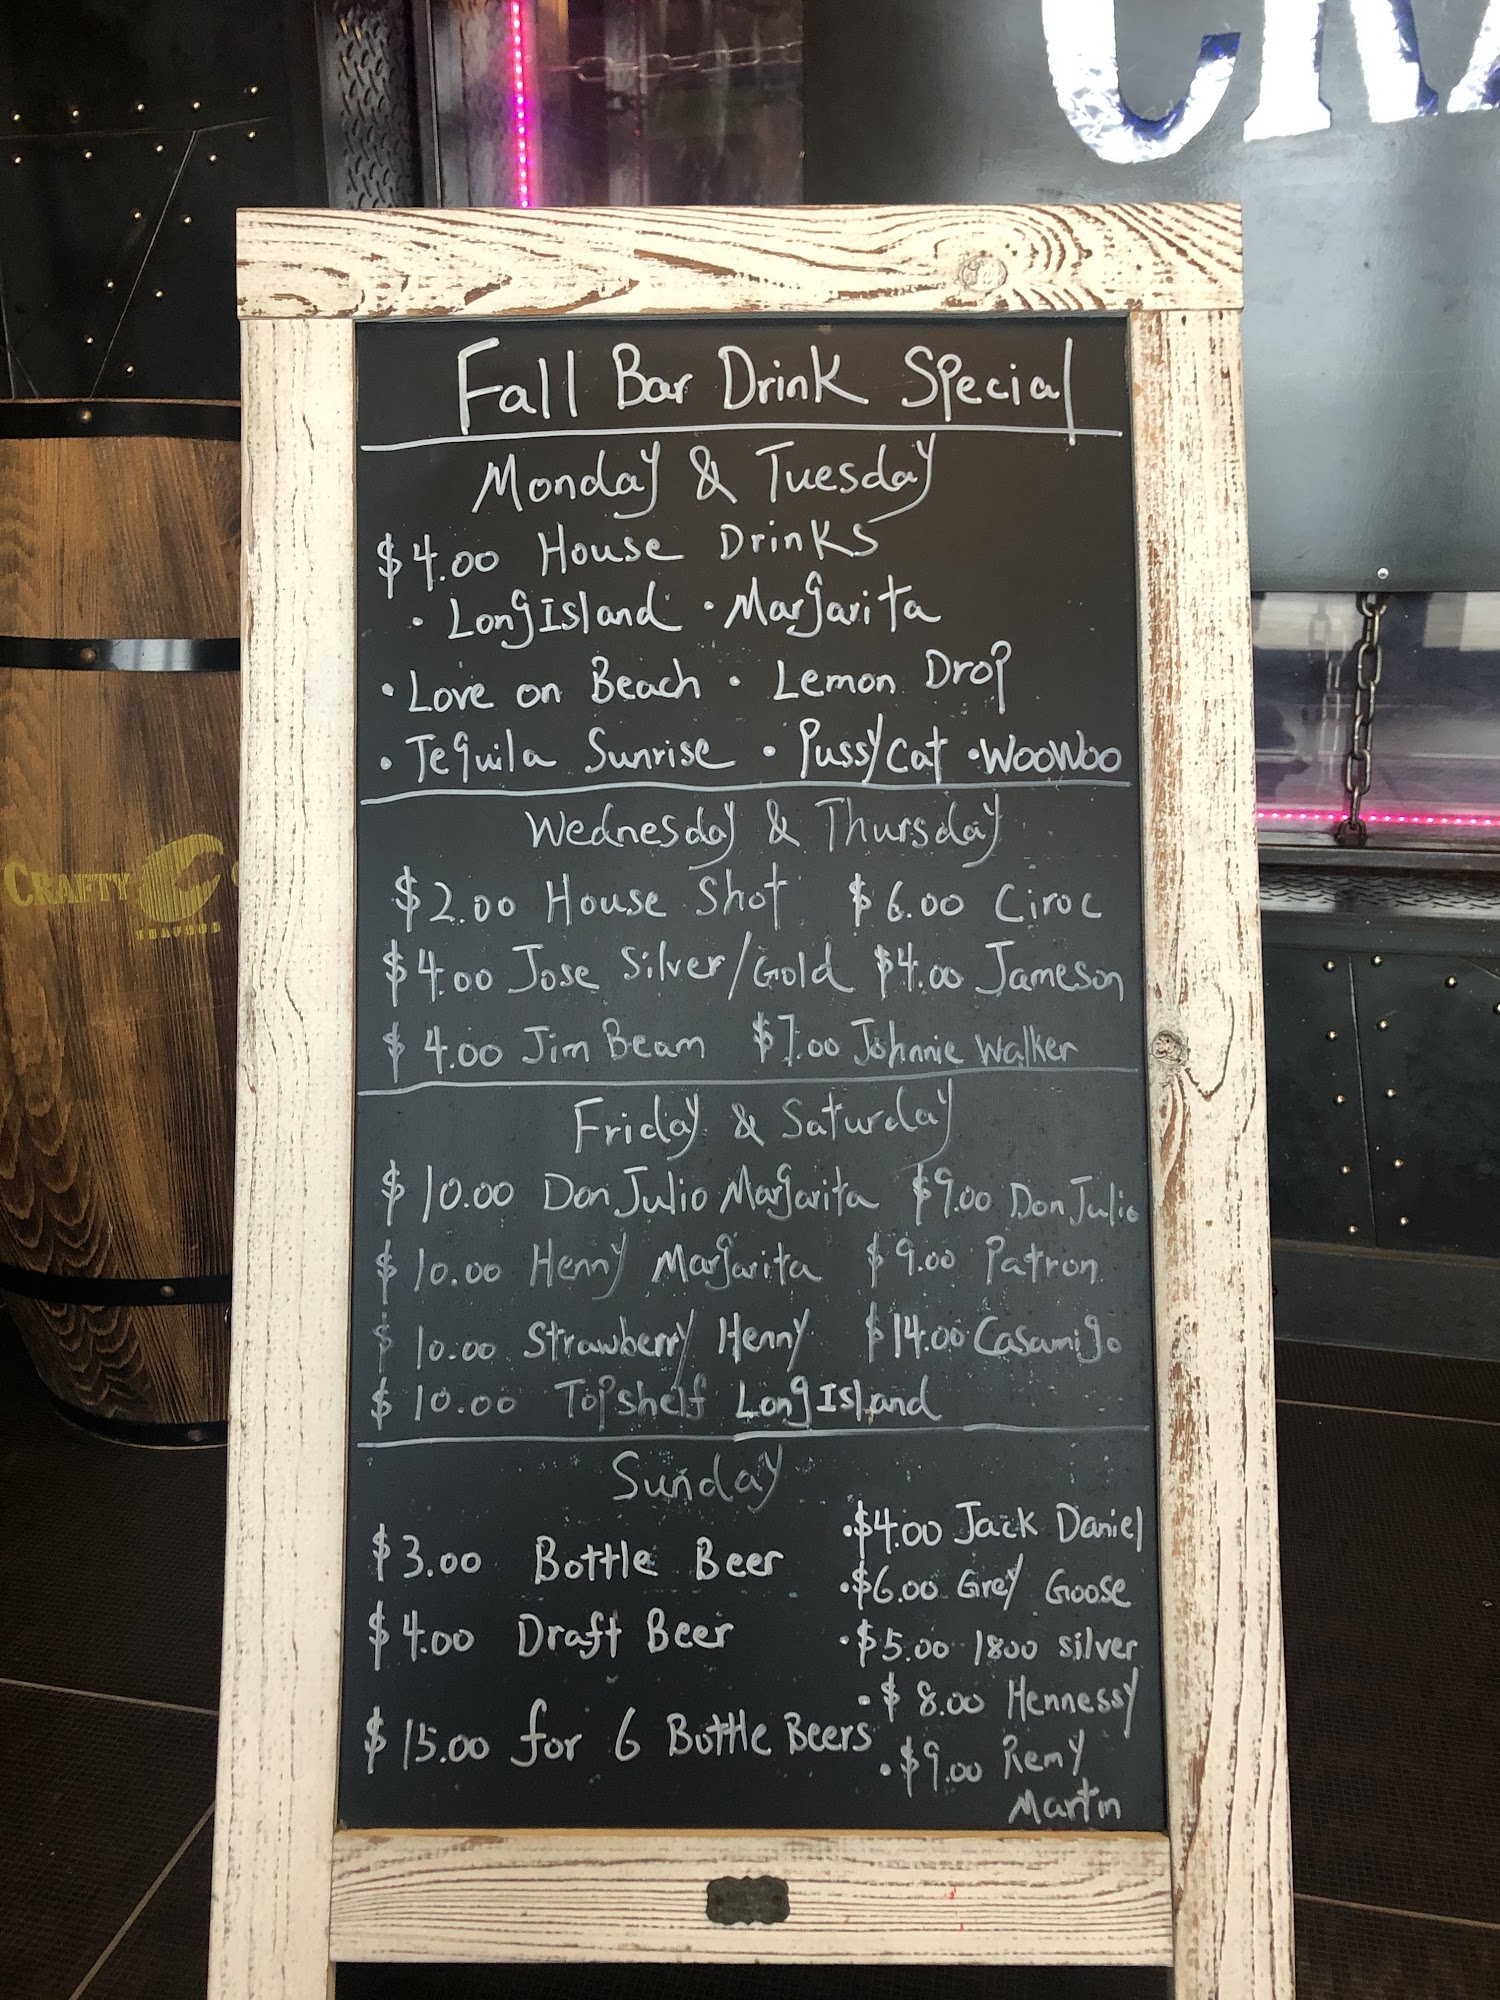 Fall Bar Drink Special
Monday & Tuesday
$4.00 House Drinks
· Long Island · Margarita
· Love on Beach · Lemon Drop
· Tequila Sunrise · Pussycat · WooWoo
Wednesday & Thursday
$2.00 House Shot $6.00 Ciroc
$4.00 Jose Silver/Gold $4.00 Jameson
$4.00 Jim Beam $7.00 Johnnie Walker
Friday & Saturday
$10.00 Don Julio Margarita $9.00 Don Julio
$10.00 Henny Margarita $9.00 Patron
$10.00 Strawberry Henny $14.00 Casamigo
$10.00 Topshelf Long Island
Sunday
$3.00 Bottle Beer
$4.00 Draft Beer
$15.00 for 6 Bottle Beers
· $4.00 Jack Daniel
· $6.00 Grey Goose
· $5.00 1800 silver
· $8.00 Hennessy
· $9.00 Remy
Martin
CRAFTY C
SEAFOOD